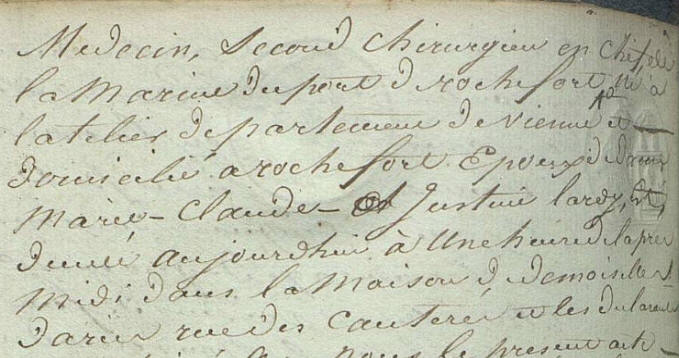 Medecin, Second chirurgien en chef de
la Marine du port de rochefort, né à
latelier departement de vienne et
domicilié a rochefort Epoux de dame
Marie-Claude- Justine lardy,
decedé aujourdhui à Une heure de laprès
midi dans la Maison de demoiselles
darier rue des
le present